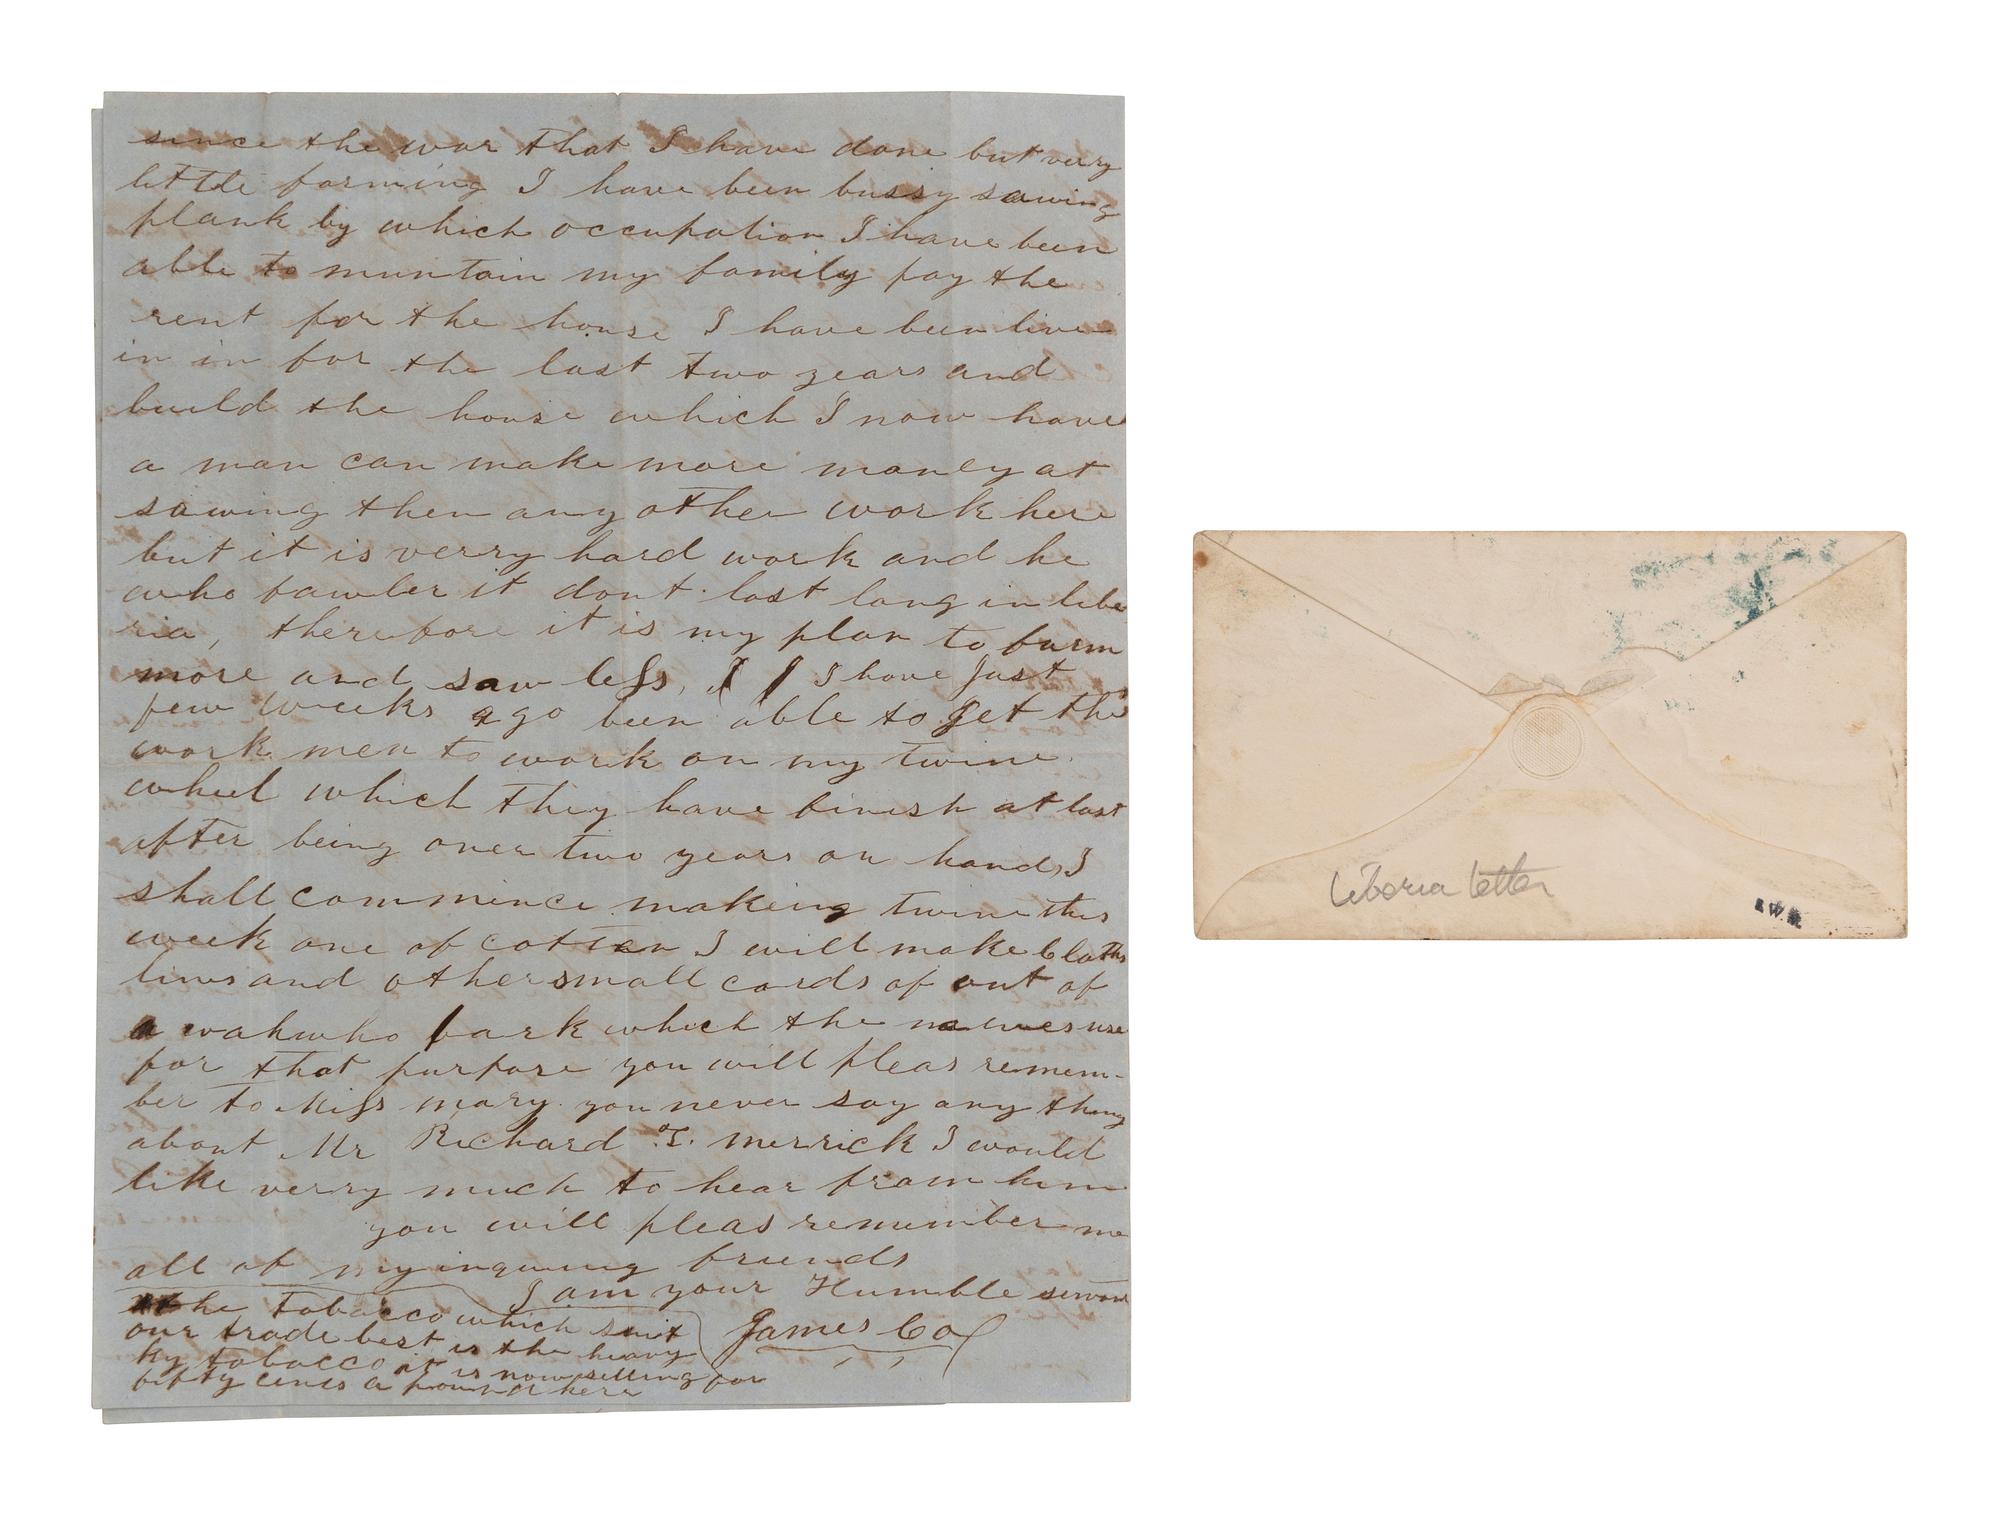 since the war that I have done but very
little farming I have been bussy sawing
plank by which occupation I have been
able to muntain my family pay the
rent for the house I have been live
in in for the last two years and
build the house which I now have
a man can make more monley at
sawing then any other work here
but it is verry hard work and he
who it dont last long in libe
ria, therefore it is my plan to farm
more and saw less, I have just
few weeks ago been able to get the
work men to work on my twine
wheel which they have finish at last
after being over two years on hand, I
shall commence making twine this
week one of cotten I will make cloths
lines and other small cords of out of
a wahwho bark which the natives use
for that purpose you will pleas remem-
ber to Miss mary. you never say any thing
about Mr Richard T. merrick I would
like verry much to hear from him
you will pleas remember me
all of my inquiring friends
I am your Humble servant
James Coa
the tobacco which suit
our trade best is the heavy
Ky tobacco it is now selling for
fifty cents a pound here
Liberia letter